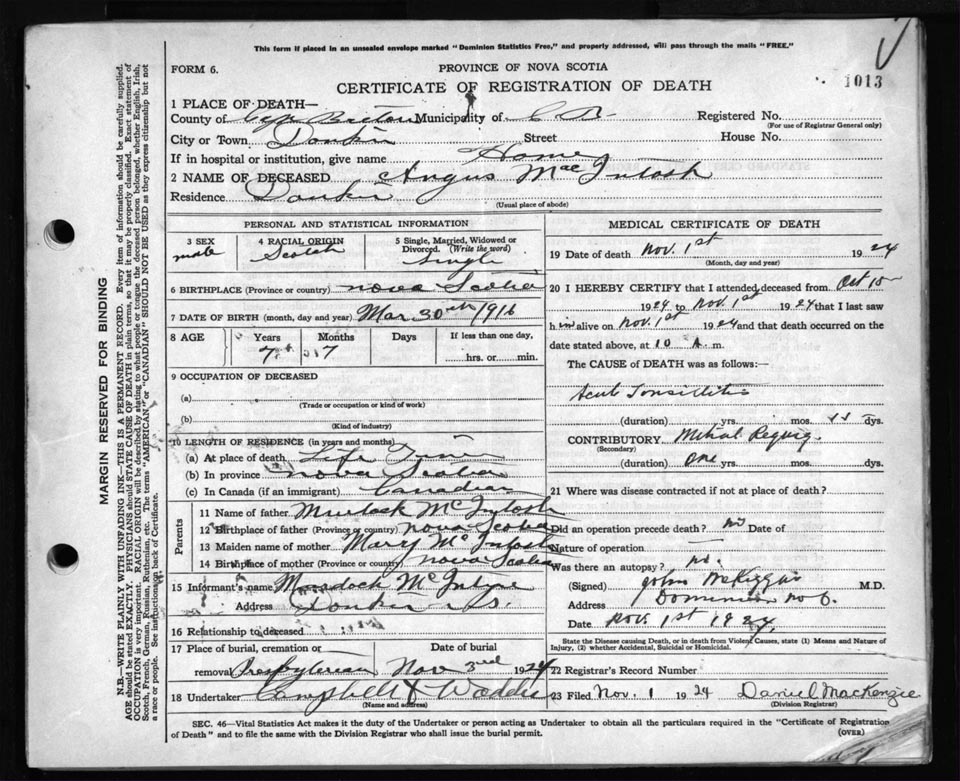 This form if placed in an unsealed envelope marked "Dominion Statistics Free," and properly addressed, will pass through the mails "FREE."
FORM 6.
PROVINCE OF NOVA SCOTIA
1013
CERTIFICATE OF REGISTRATION OF DEATH
1 PLACE OF DEATH—
County of Cape Breton Municipality of C B. Registered No.
(For use of Registrar General only)
City or Town Donkin Street House No.
If in hospital or institution, give name Home
2 NAME OF DECEASED Angus MacIntosh
Residence Donkin
(Usual place of abode)
PERSONAL AND STATISTICAL INFORMATION
3 SEX male
4 RACIAL ORIGIN Scotch
5 Single, Married, Widowed or Divorced. (Write the word) Single
6 BIRTHPLACE (Province or country) Nova Scotia
7 DATE OF BIRTH (month, day and year) Mar 30th 1916
8 AGE Years Months Days If less than one day,
7 7 hrs. or min.
9 OCCUPATION OF DECEASED
(a)
(Trade or occupation or kind of work)
(b)
(Kind of industry)
10 LENGTH OF RESIDENCE (in years and months)
(a) At place of death Life Time
(b) In province Nova Scotia
(c) In Canada (if an immigrant) Canadian
Parents
11 Name of father Murdock McIntosh
12 Birthplace of father (Province or country) Nova Scotia
13 Maiden name of mother Mary McIntosh
14 Birthplace of mother (Province or country) Nova Scotia
15 Informant's name Murdock McIntyre
Address Donkin N.S.
16 Relationship to deceased
17 Place of burial, cremation or removal Presbyterian
Date of burial Nov 3rd 1924
18 Undertaker Campbell & Waddie
(Name and address)
MEDICAL CERTIFICATE OF DEATH
19 Date of death Nov. 1st 1924
(Month, day and year)
20 I HEREBY CERTIFY that I attended deceased from Oct 15
1924 to Nov. 1st 1924 that I last saw
him alive on Nov. 1st 1924 and that death occurred on
the date stated above, at 10 A. m.
The CAUSE of DEATH was as follows:—
Acute Tonsillitis
(duration) yrs. mos. dys.
CONTRIBUTORY Mitral Regurg.
(Secondary)
(duration) one yrs. mos. dys.
21 Where was disease contracted if not at place of death?
Did an operation precede death? no Date of
Nature of operation
Was there an autopsy? no.
(Signed) John McKiggan M.D.
Address Dominion No 6.
Date Nov. 1st 1924
State the Disease causing Death, or in death from Violent Causes, state (1) Means and Nature of Injury, (2) whether Accidental, Suicidal or Homicidal.
22 Registrar's Record Number
23 Filed Nov. 1 1924 Daniel MacKenzie
(Division Registrar)
SEC. 46—Vital Statistics Act makes it the duty of the Undertaker or person acting as Undertaker to obtain all the particulars required in the "Certificate of Registration
of Death" and to file the same with the Division Registrar who shall issue the burial permit.
(OVER)
MARGIN RESERVED FOR BINDING
N.B.—WRITE PLAINLY WITH UNFADING INK—THIS IS A PERMANENT RECORD. Every item of information should be carefully supplied.
AGE should be stated EXACTLY. PHYSICIANS should STATE CAUSE OF DEATH in plain terms, so that it may be properly classified. Exact statement of
OCCUPATION is very important. RACIAL ORIGIN will be described by stating to what people or tongue the deceased person belonged, whether English, Irish,
Scotch, French, German, Russian, Ruthenian, etc. The terms "AMERICAN" or "CANADIAN" SHOULD NOT BE USED as they express citizenship but not
a race or people. See instructions on back of Certificate.